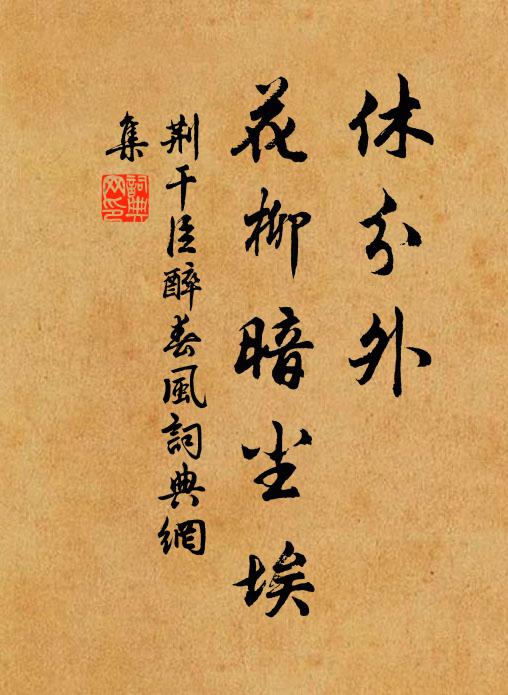 休分外
花柳暗尘埃
荆干臣醉春風詞典網
集
詞典
网印